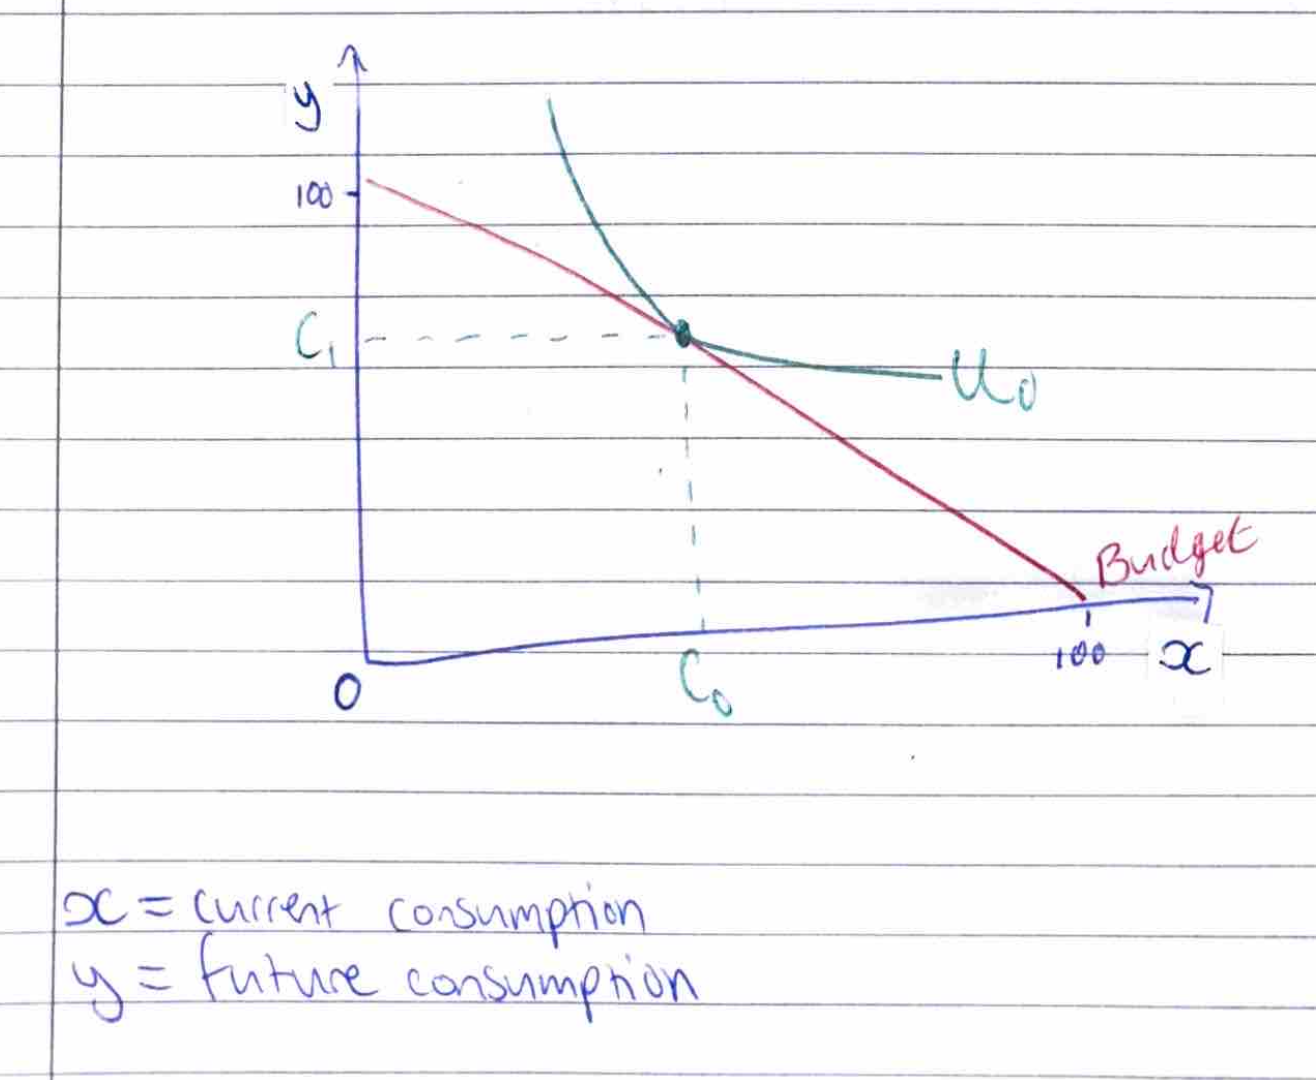 y
100
C₁
U₀
Budget
0
C₀
100
x
x = current consumption
y = future consumption